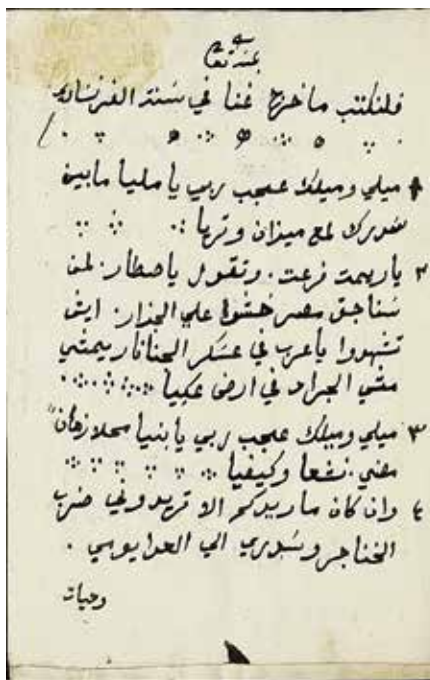 بمنه تعا
فلنكتب ما خرج غنا في سنة الفرنساويه
١ ميلي وميلك عجب ربي يا مليا مابين
سدرك لمع ميزان وتريا
٢ يا ريمت فرعت. وتقول يا صطار. لمن
سناجق مصر خشوا علي الجزار. ايش
تشهدوا يا عرب في عسكر الجنانار يمشي
مشي الجراد في ارض عكيا
٣ ميلي وميلك عجب ربي يا بنيا محلا زمان
مضي. نفعا وكيفيا
٤ وان كان ما ريدكم الا تريدوني ضرب
الخناجر وسدري الي العدا يومي.
وحيات